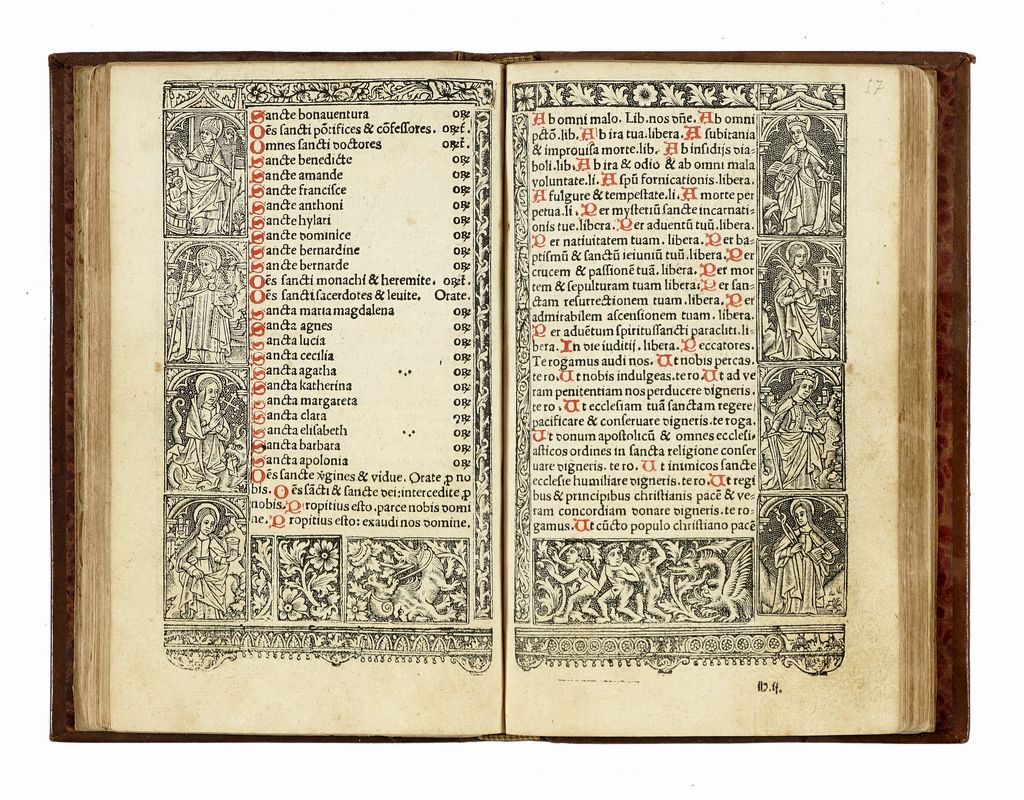 Sancte bonauentura
Oēs sancti pōtifices & cōfessores. orat̄.
Omnes sancti doctores orat̄.
Sancte benedicte or̄
Sancte amande or̄
Sancte francisce or̄
Sancte anthoni or̄
Sancte hylari or̄
Sancte dominice or̄
Sancte bernardine or̄
Sancte bernarde or̄
Oēs sancti monachi & heremite. orat̄.
Oēs sancti sacerdotes & leuite. Orate.
Sancta maria magdalena or̄
Sancta agnes or̄
Sancta lucia or̄
Sancta cecilia or̄
Sancta agatha or̄
Sancta katherina or̄
Sancta margareta or̄
Sancta clara or̄
Sancta elisabeth or̄
Sancta barbara or̄
Sancta apolonia or̄
Oēs sancte v̄gines & vidue. Orate ꝓ no
bis. Oēs sācti & sancte dei: intercedite ꝓ
nobis. Propitius esto. parce nobis domi
ne. Propitius esto: exaudi nos domine.
57
Ab omni malo. Lib. nos dn̄e. Ab omni
pctō. lib. Ab ira tua. libera. A subitania
& improuisa morte. lib. Ab insidijs dia-
boli. lib. Ab ira & odio & ab omni mala
voluntate. li. A spū fornicationis. libera.
A fulgure & tempestate. li. A morte per
petua. li. Per mysteriū sancte incarnati-
onis tue. libera. Per aduentū tuū. libera.
Per natiuitatem tuam. libera. Per ba-
ptismū & sanctū ieiuniū tuū. libera. Per
crucem & passionē tuā. libera. Per mor
tem & sepulturam tuam libera: Per san-
ctam resurrectionem tuam. libera. Per
admirabilem ascensionem tuam. libera.
Per aduētum spiritussancti paracliti. li-
bera. In die iuditij. libera. Peccatores.
Te rogamus audi nos. Ut nobis percas.
te ro. Ut nobis indulgeas. te ro. Ut ad ve
ram penitentiam nos perducere digneris.
te ro. Ut ecclesiam tuā sanctam regere/
pacificare & conseruare digneris. te roga.
Ut donum apostolicū & omnes ecclesi-
asticos ordines in sancta religione conser
uare digneris. te ro. Ut inimicos sancte
ecclesie humiliare digneris. te ro. Ut regi
bus & principibus christianis pacē & ve-
ram concordiam donare digneris. te ro-
gamus. Ut cūcto populo christiano pacē